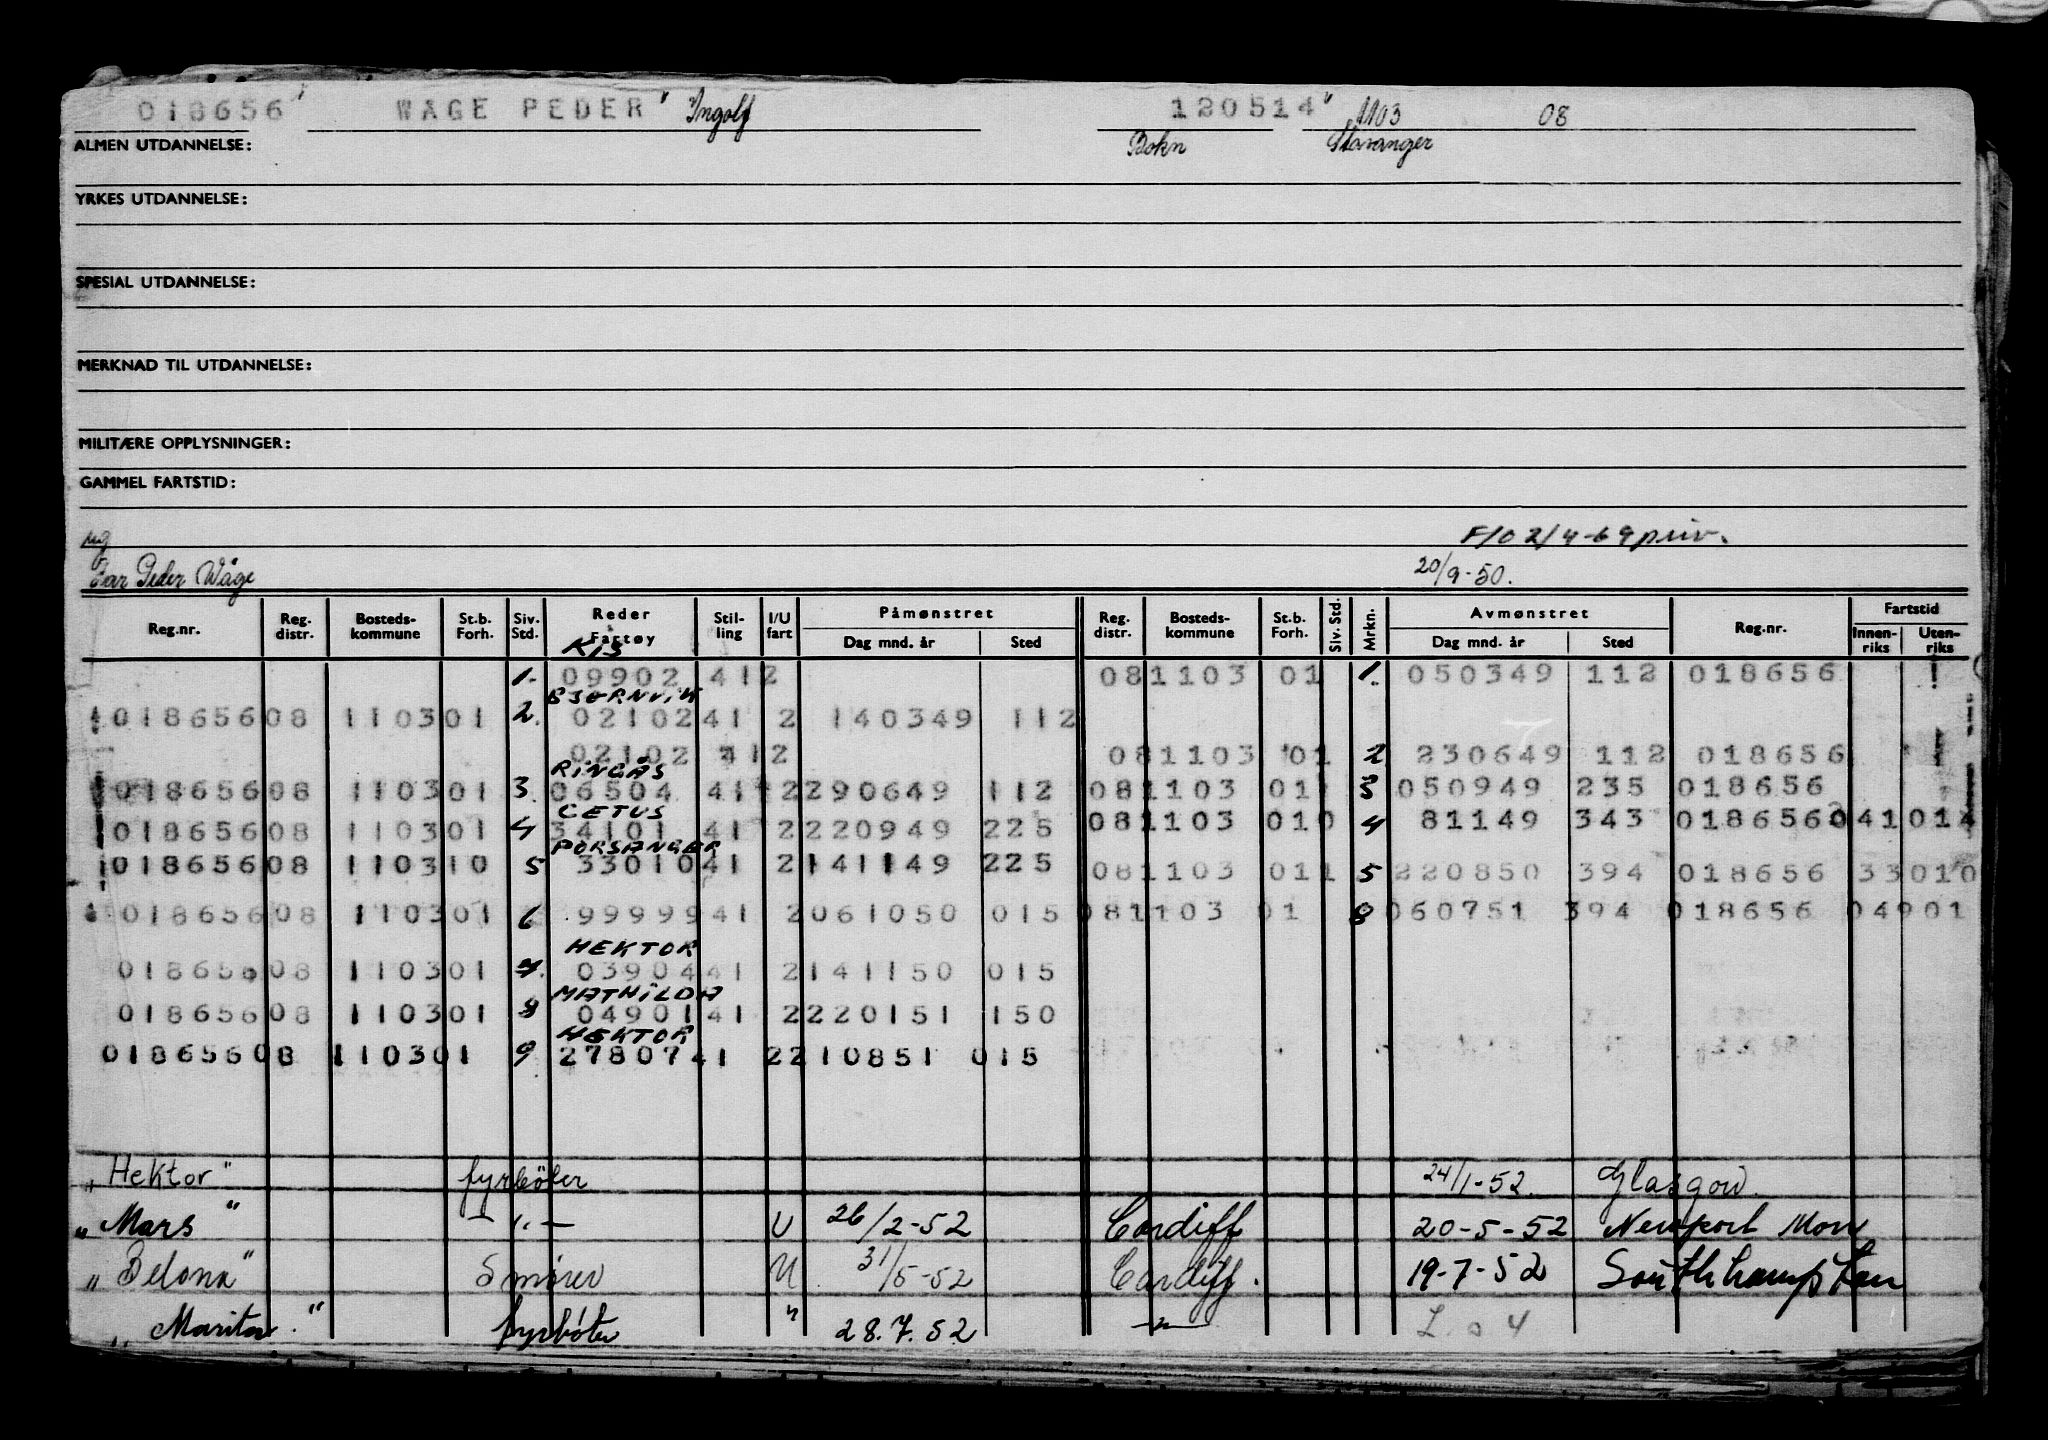 018656 WAGE PEDER Ingolf 120514 1103 08
ALMEN UTDANNELSE: Bokn Stavanger
YRKES UTDANNELSE:
SPESIAL UTDANNELSE:
MERKNAD TIL UTDANNELSE:
MILITÆRE OPPLYSNINGER:
GAMMEL FARTSTID:
ug F/O 2/4-69 priv.
Far Peder Wåge 20/9-50.
Reg.nr. Reg. distr. Bosteds-kommune St.b. Forh. Siv. Std. Reder Fartøy Stil-ling I/U fart Påmønstret Dag mnd. år Sted Reg. distr. Bosteds-kommune St.b. Forh. Siv. Std. Mrkn. Avmønstret Dag mnd. år Sted Reg.nr. Fartstid Innen-riks Uten-riks
KIS
1. 09902 412 081103 01 1. 050349 112 018656
BJØRNVIK
01865608 110301 2. 0210241 2 140349 112
02102 412 081103 01 2 230649 112 018656
RINGÅS
01865608 110301 3. 06504 41 2290649 112 081103 01 3 050949 235 018656
CETUS
01865608 110301 4 34101 41 2220949 225 081103 010 4 81149 343 0186560 41014
PORSANGER
01865608 110310 5 3301041 2141149 225 081103 011 5 220850 394 018656 33010
01865608 110301 6 9999941 2061050 015 081103 01 8 060751 394 018656 04901
HEKTOR
01865608 110301 7. 0390441 2141150 015
MATHILDA
01865608 110301 8 0490141 2220151 150
HEKTOR
01865608 110301 9 2780741 2210851 015
"Hektor" fyrbøter 24/1-52. Glasgow.
"Mars" -"- U 26/2-52 Cardiff 20-5-52 Newport Mon
"Belona" Smører U 31/5-52 Cardiff. 19-7-52 Southhampton
"Marita." fyrbøter " 28.7.52 -"-